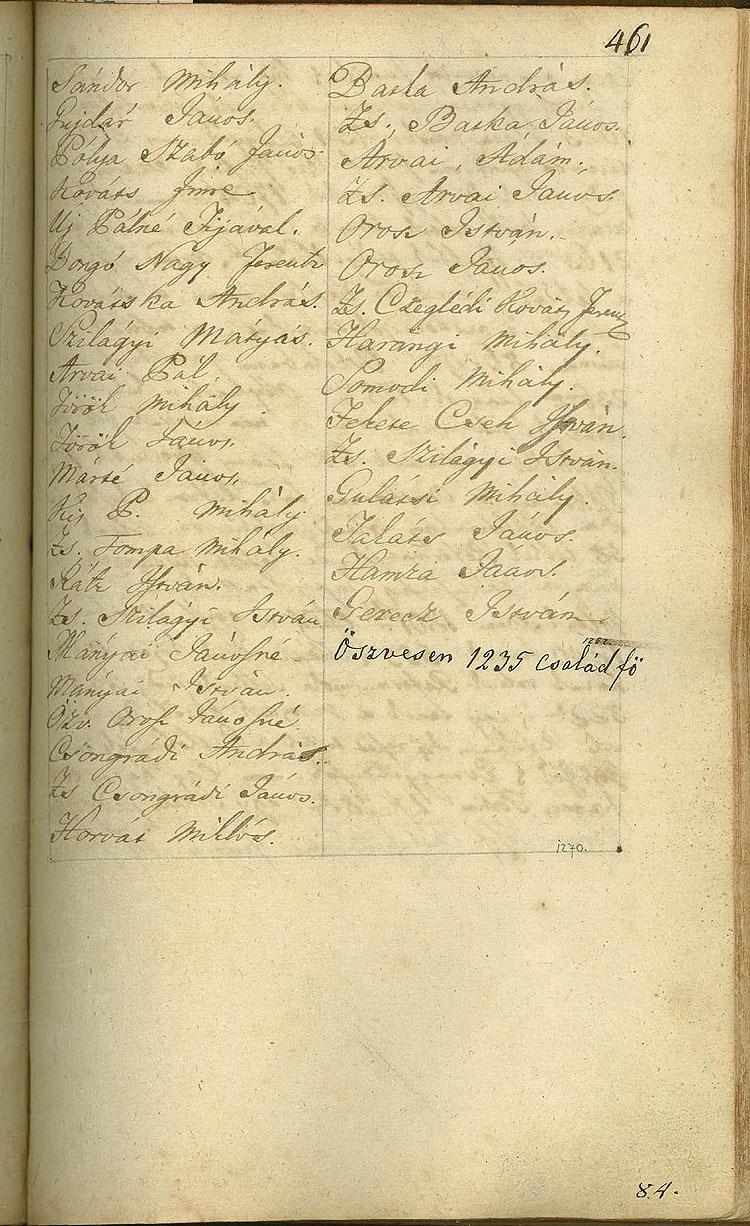 461
Sándor Mihály.
Gujdár János.
Pólya Szabó János
Kováts Imre
Uj Pálné Fijával.
Dongó Nagy Ferentz
Kovátska András.
Szilágyi Mátyás.
Arvai Pál.
Török Mihály
Török János.
Márté János.
Kis P. Mihály
Zs. Tompa Mihály.
Rátz István.
Zs. Szilágyi István
Mányai Jánosné
Mányai István.
Özv. Oros Jánosné
Csongrádi András.
Zs Csongrádi János.
Horvát Miklós.
Barla András.
Zs. Barka János.
Arvai Ádám.
Zs. Arvai János.
Oros István.
Oros János.
Zs. Czeglédi Kováts Ferentz
Harangi Mihály.
Somodi Mihály.
Fekete Cseh István.
Zs. Szilágyi István.
Gulátsi Mihály.
Taláts János.
Hamza János.
Gerecz István
Öszvesen 1235 család fö
1270.
84.